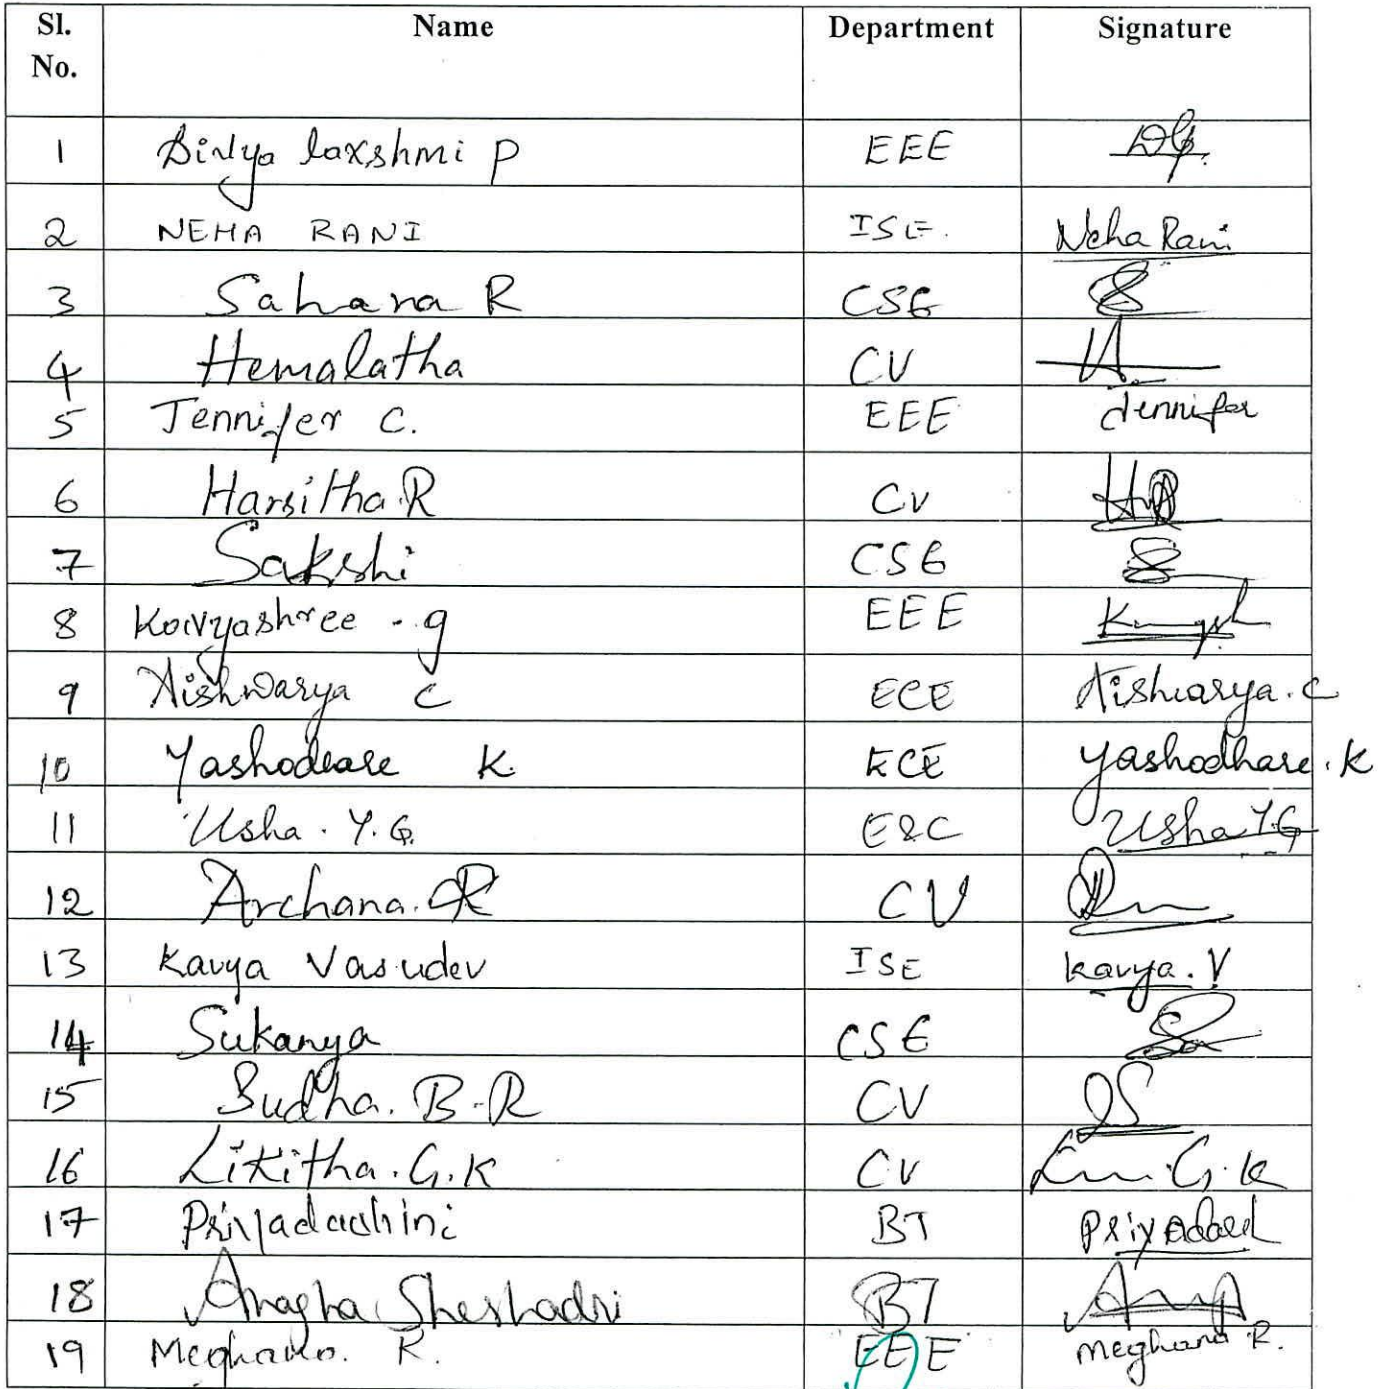 Sl. No. Name Department Signature
1 Divya laxshmi P EEE
2 NEHA RANI ISE. Neha Rani
3 Sahana R CSE
4 Hemalatha CV
5 Jennifer C. EEE Jennifer
6 Harsitha.R CV
7 Sakshi CSE
8 Kavyashree - g EEE
9 Aishwarya C ECE Aishwarya.C
10 Yashodhare K. ECE Yashodhare.K
11 Usha. Y.G. E&C Usha Y.G
12 Archana. R CV
13 Kavya Vasudev ISE Kavya.V
14 Sukanya CSE
15 Sudha. B.R CV
16 Likitha.G.K CV G.K
17 Priyadarshini BT Priyadarsh
18 Anagha Sheshadri BT
19 Meghana. R. EEE Meghana R.